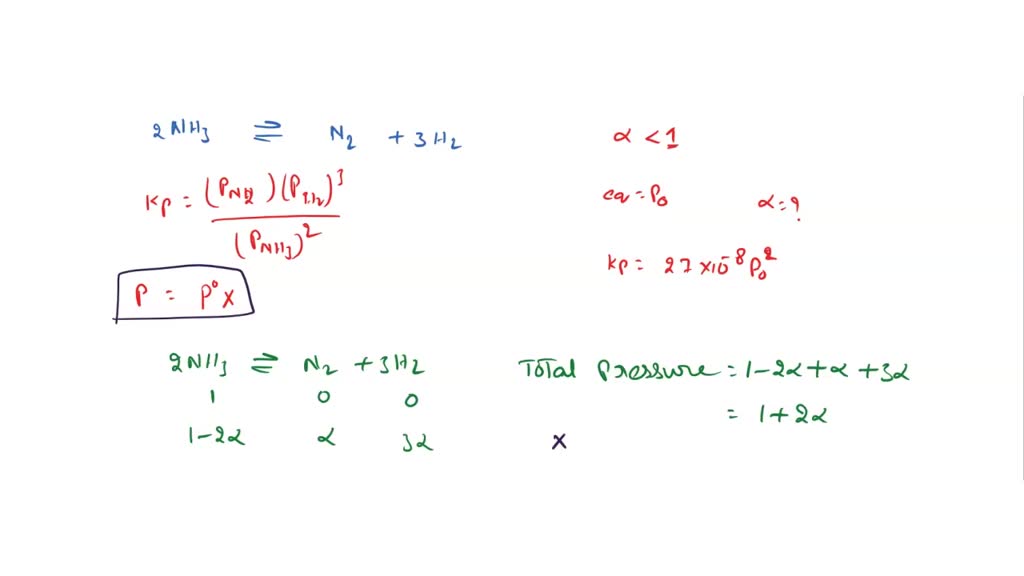 2NH₃ ⇌ N₂ + 3H₂
α < 1
Kp = (P_N2)(P_H2)³ / (P_NH3)²
eq = P₀
α = ?
Kp = 27 × 10⁻⁸ P₀²
P = P⁰ x
2NH₃ ⇌ N₂ + 3H₂
1 0 0
1-2α α 3α
Total Pressure = 1-2α+α+3α
= 1+2α
x